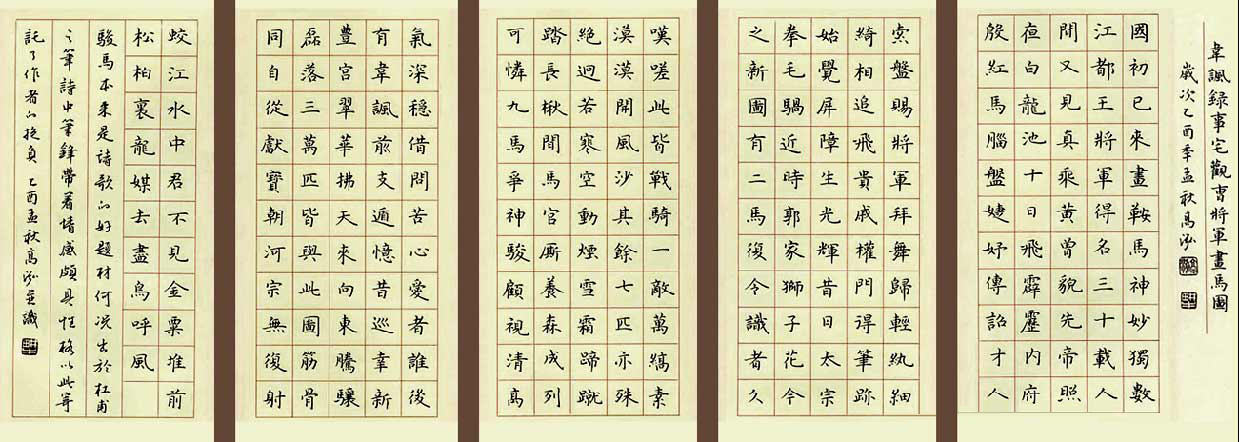 韋諷録事宅觀曹將軍畫馬圖
歲次乙酉季孟秋高泓
國初已來畫鞍馬神妙獨數
江都王將軍得名三十載人
間又見真乘黃曾貌先帝照
夜白龍池十日飛霹靂内府
殷紅馬腦盤婕妤傳詔才人
索盤賜將軍拜舞歸輕紈細
綺相追飛貴戚權門得筆跡
始覺屏障生光輝昔日太宗
拳毛騧近時郭家獅子花今
之新圖有二馬復令識者久
嘆嗟此皆戰騎一敵萬縞素
漠漠開風沙其餘七匹亦殊
絕迥若寒空動煙雪霜蹄蹴
踏長楸間馬官廝養森成列
可憐九馬爭神駿顧視清高
氣深穩借問苦心愛者誰後
有韋諷前支遁憶昔巡幸新
豐宮翠華拂天來向東騰驤
磊落三萬匹皆與此圖筋骨
同自從獻寶朝河宗無復射
蛟江水中君不見金粟堆前
松柏裏龍媒去盡鳥呼風
駿馬本來是詩歌的好題材何況出於杜甫
之筆詩中筆鋒帶著情感頗具性格以此寄
託了作者的抱負 乙酉孟秋高泓並識